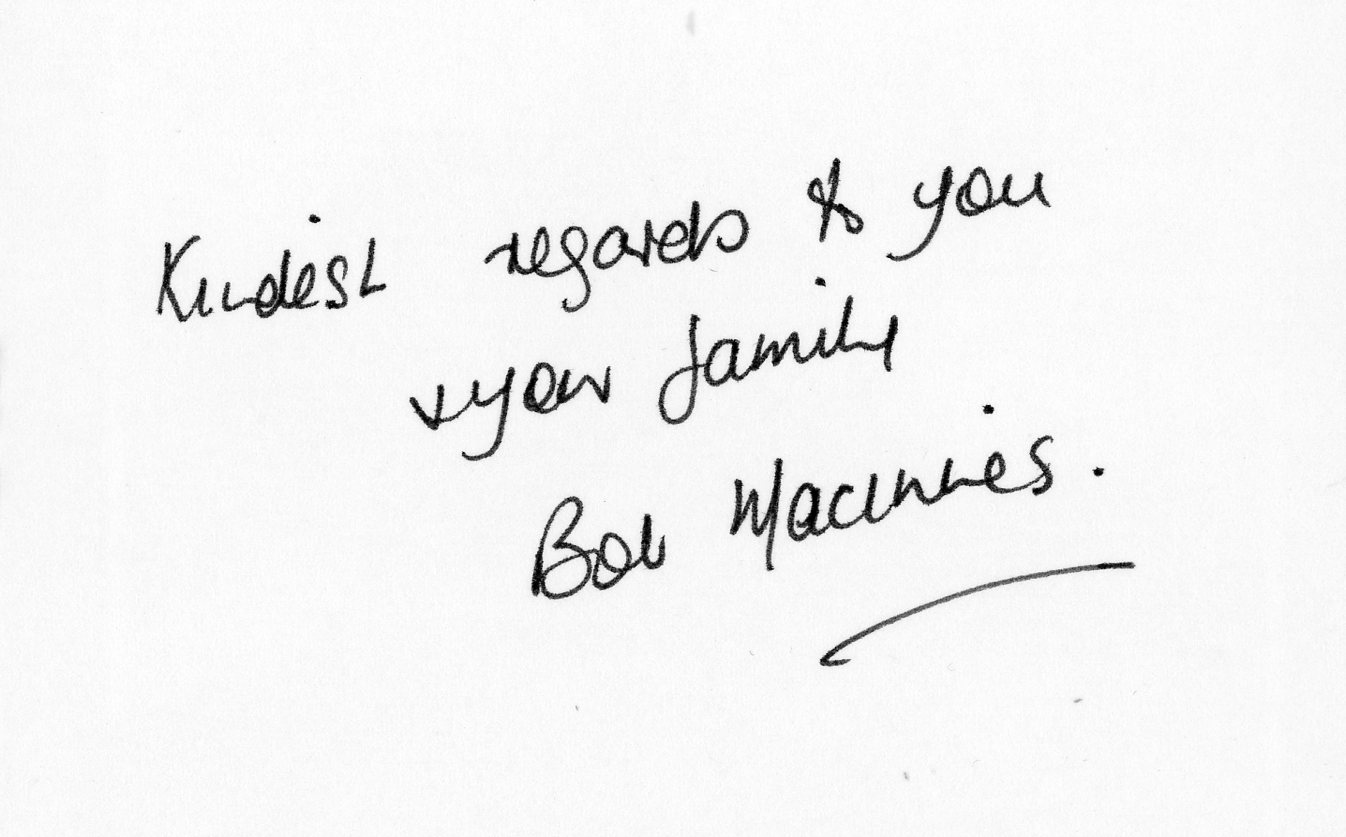 Kindest regards to you
& your family
Bob MacInnes.